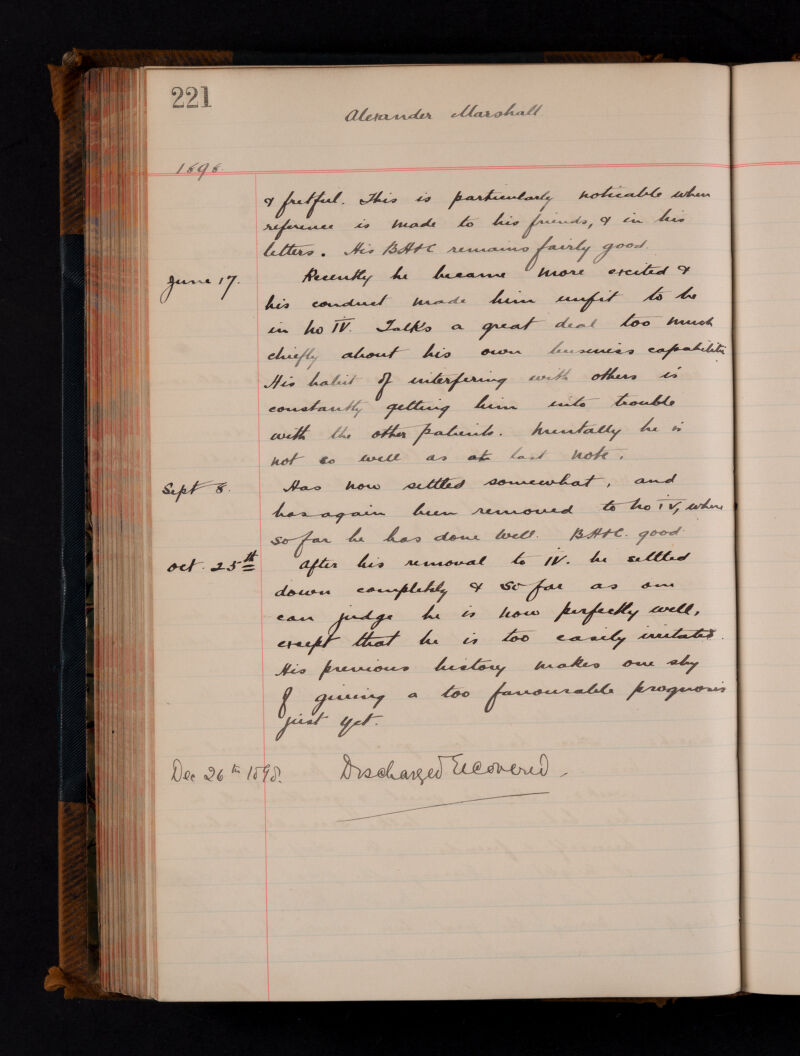 221
Alexander Marshall
1898.
& fretful. This is particularly noticable when
reference is made to his friends, & in his
letters. His BH+C remains fairly good.
June 17. Recently he became more excited &
his conduct made him unfit to be
in No IV. Talks a great deal too much
chiefly about his own business capabilities
His habit of interfering with others is
constantly getting him into trouble
with the other patients. Mentally he is
not so well as at last note.
Sept 8. Has now settled somewhat, and
has again been removed to No IV, where
so far he has done well. BH+C. good.
Oct. 25th After his removal to IV. he settled
down completely & so far as one
can judge he is now perfectly well,
except that he is too easily irritated.
His previous history makes one shy
of giving a too favourable prognosis
just yet.
Dec 26th 1898. Discharged Recovered.